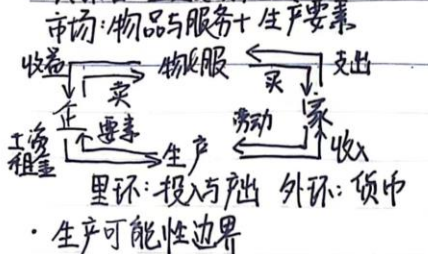 市场:物品与服务+生产要素
收益 物&服 支出
卖 买
企 要素 劳动 家
工资
租金 生产 收入
里环:投入与产出 外环:货币
·生产可能性边界